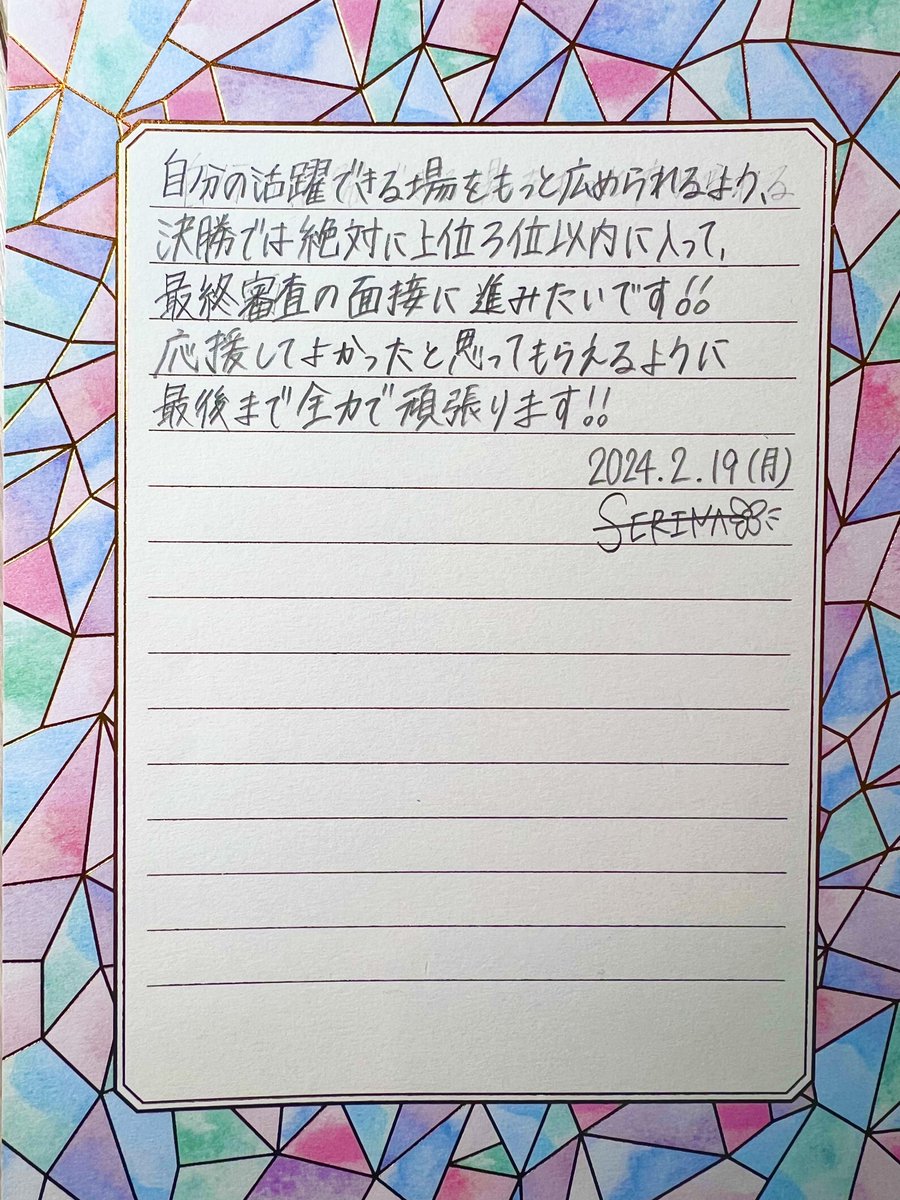 自分の活躍できる場をもっと広められるよう、
決勝では絶対に上位3位以内に入って、
最終審査の面接に進みたいです!!
応援してよかったと思ってもらえるように
最後まで全力で頑張ります!!
2024.2.19(月)
SERINA